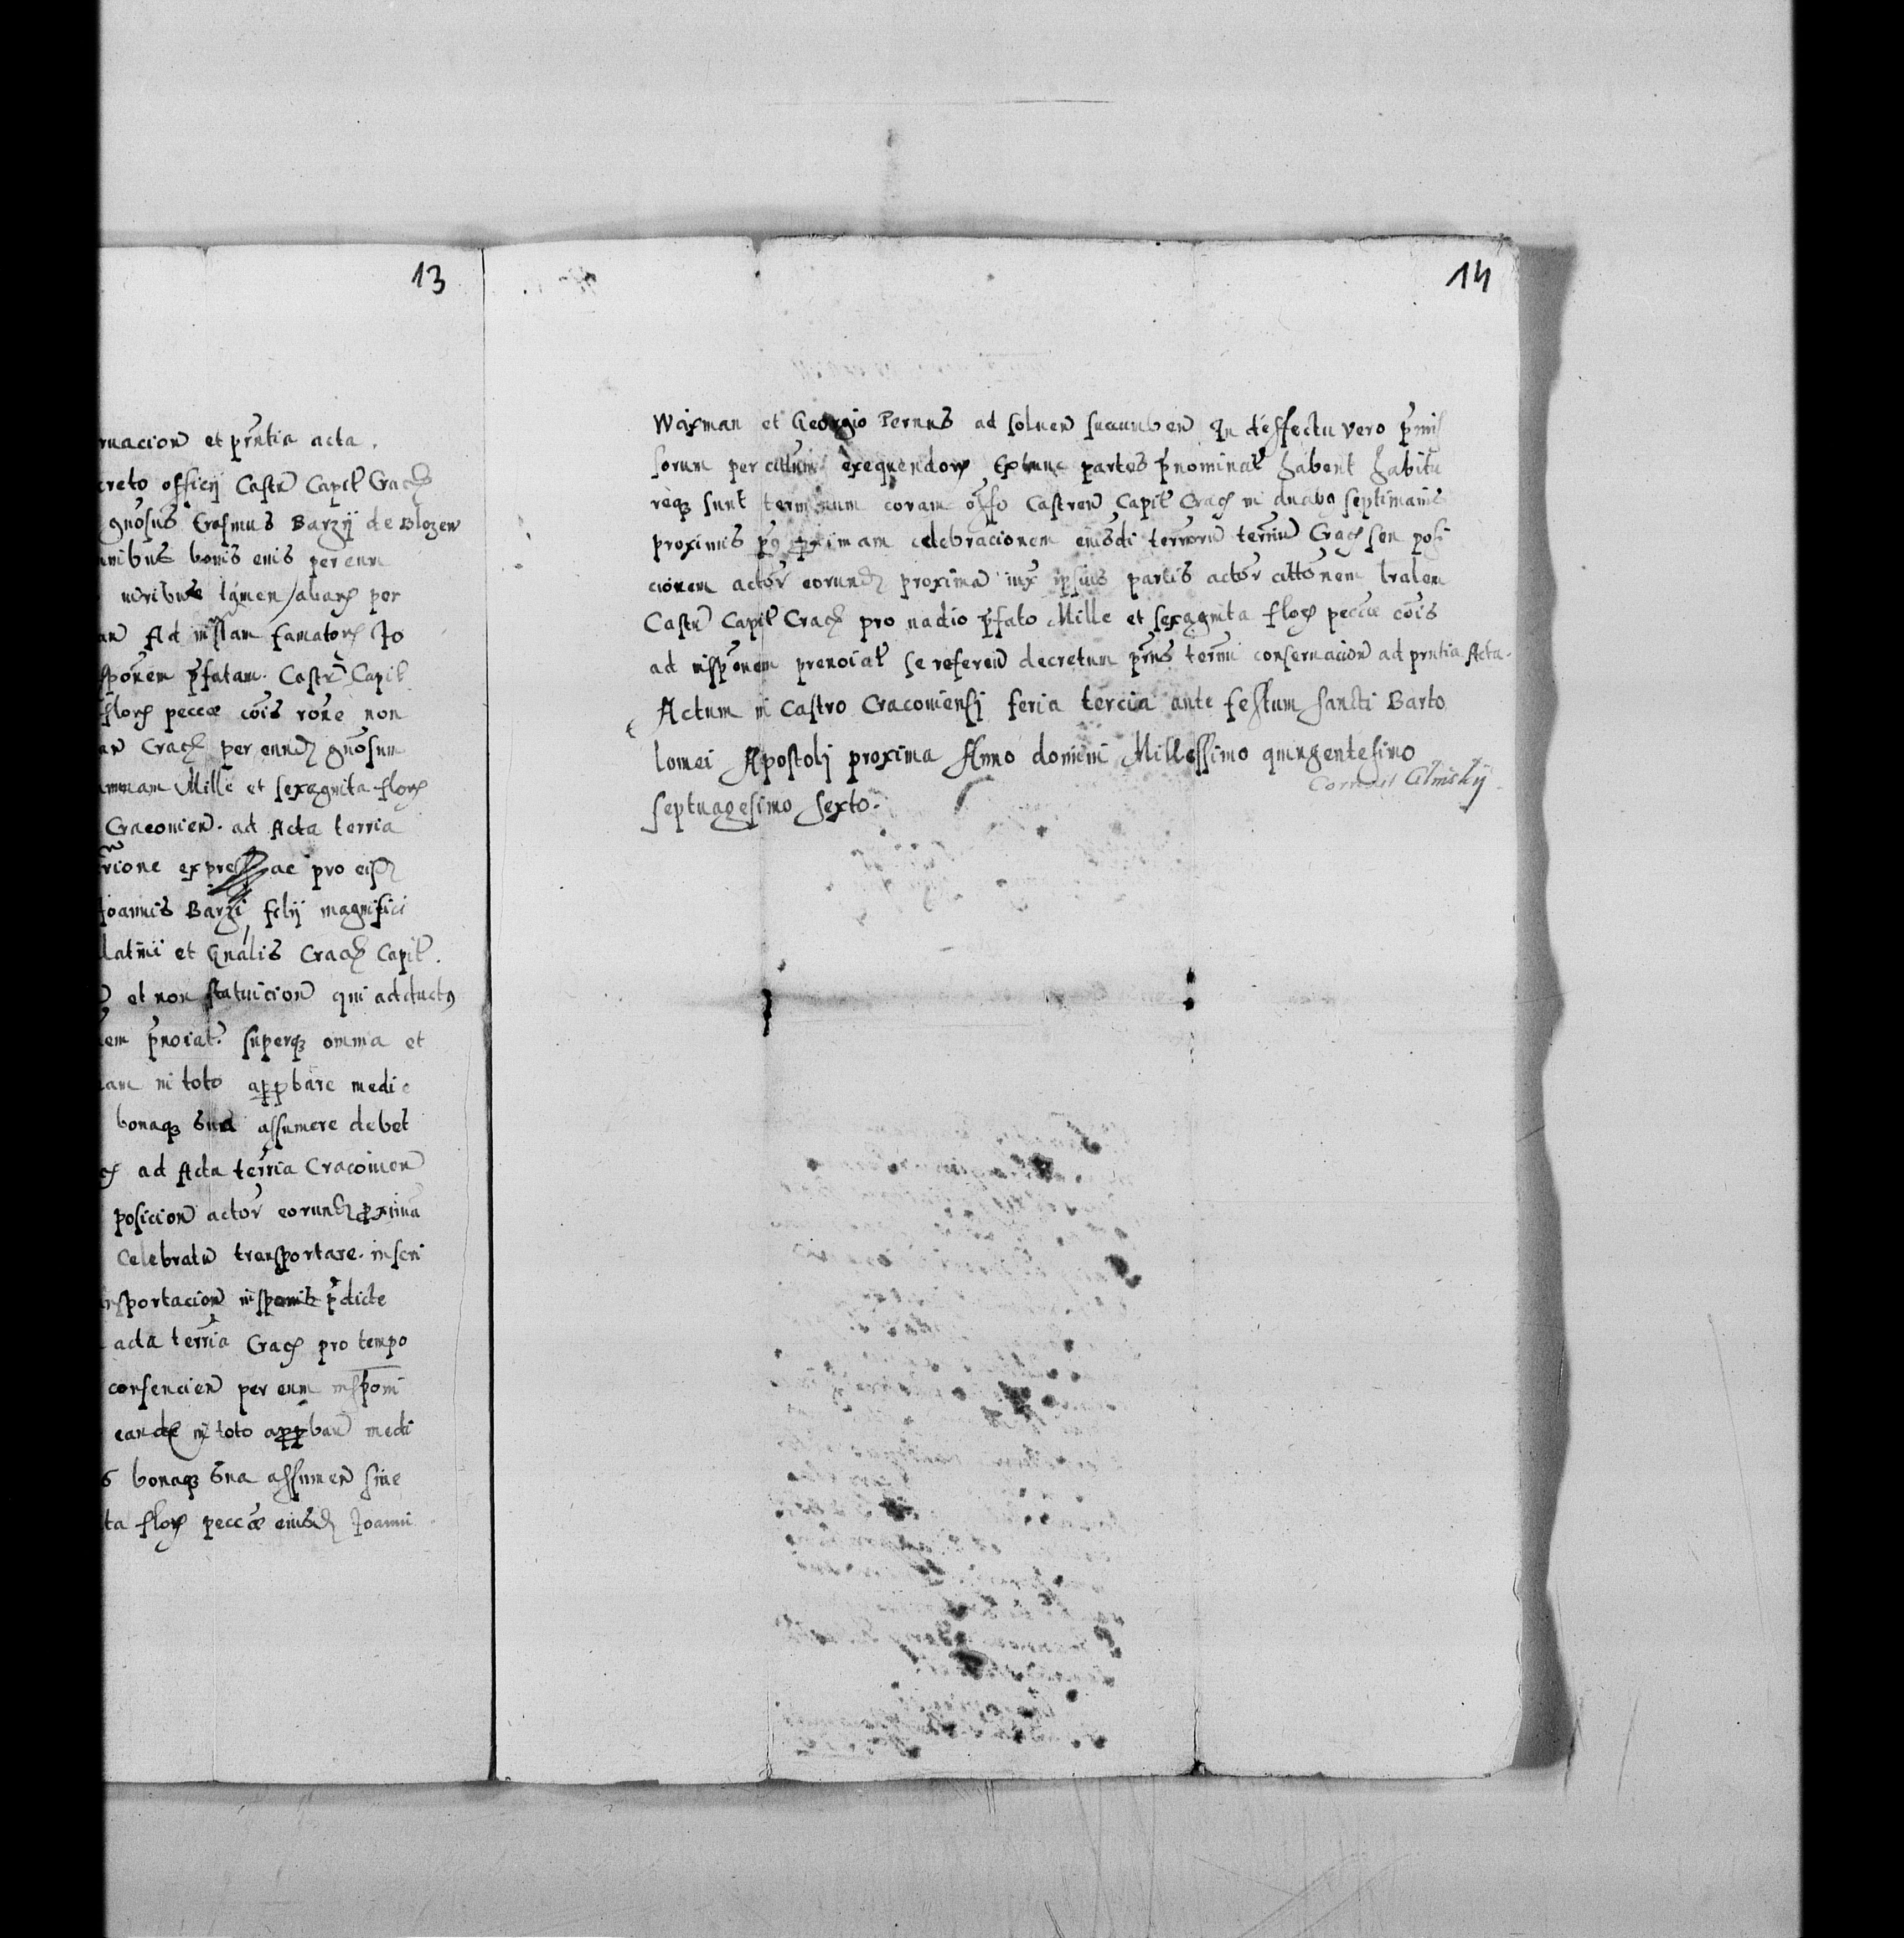 13
rnacion et pñtia acta.
creto officij Castr Capit Crac
gnosus Erasmus Barzÿ de Blozew
nibus bonis eius per eum
iuribus tamen aliarz per
Ad instam famatorz Jo
sponem pfatam. Castr Capit
florz peccæ cois rone non
Crac per eund gnosum
summam Mille et sexagnita florz
Cracovien. ad Acta terria
rione express ac pro eisd
Joannis Barzi filij magnifici
latini et Gnalis Crac Capit.
et non statuicion qui adductq
em pnoiat. superqz omnia et
am in toto appbare medi
bonaqz sua assumere debet
ad Acta terria Cracovien
posicion actor eorund pxima
Celebratu transportare. inscri
nsportacion insponis pdicte
acta terria Crac pro tempo
consencien per eum insponi
eande in toto appban medi
s bonaqz sua assumen sine
ta florz peccæ eiusd Joanni
14
Waxman et Georgio Pernus ad soluen succumben In deffectu vero pmis
sorum per citum exequendorz Extunc partes pnominat habent habitu
reqz sunt terminum coram offo Castren Capit Crac in duabq septimanis
proximis pq pximam celebracionem eiusdi terrorum termin Crac seu posi
cionem actor eorund proxima iux ipsius partis actor cittonem lralem
Castr Capit Crac pro vadio pfato Mille et sexagnita florz peccæ cois
ad insponem prenoiat se referen decretum pns termi conservacion ad pntia Acta.
Actum in Castro Cracoviensj feria tercia ante festum sancti Barto
lomei Apostolj proxima Anno domini Millessimo quingentesimo
septuagesimo sexto.